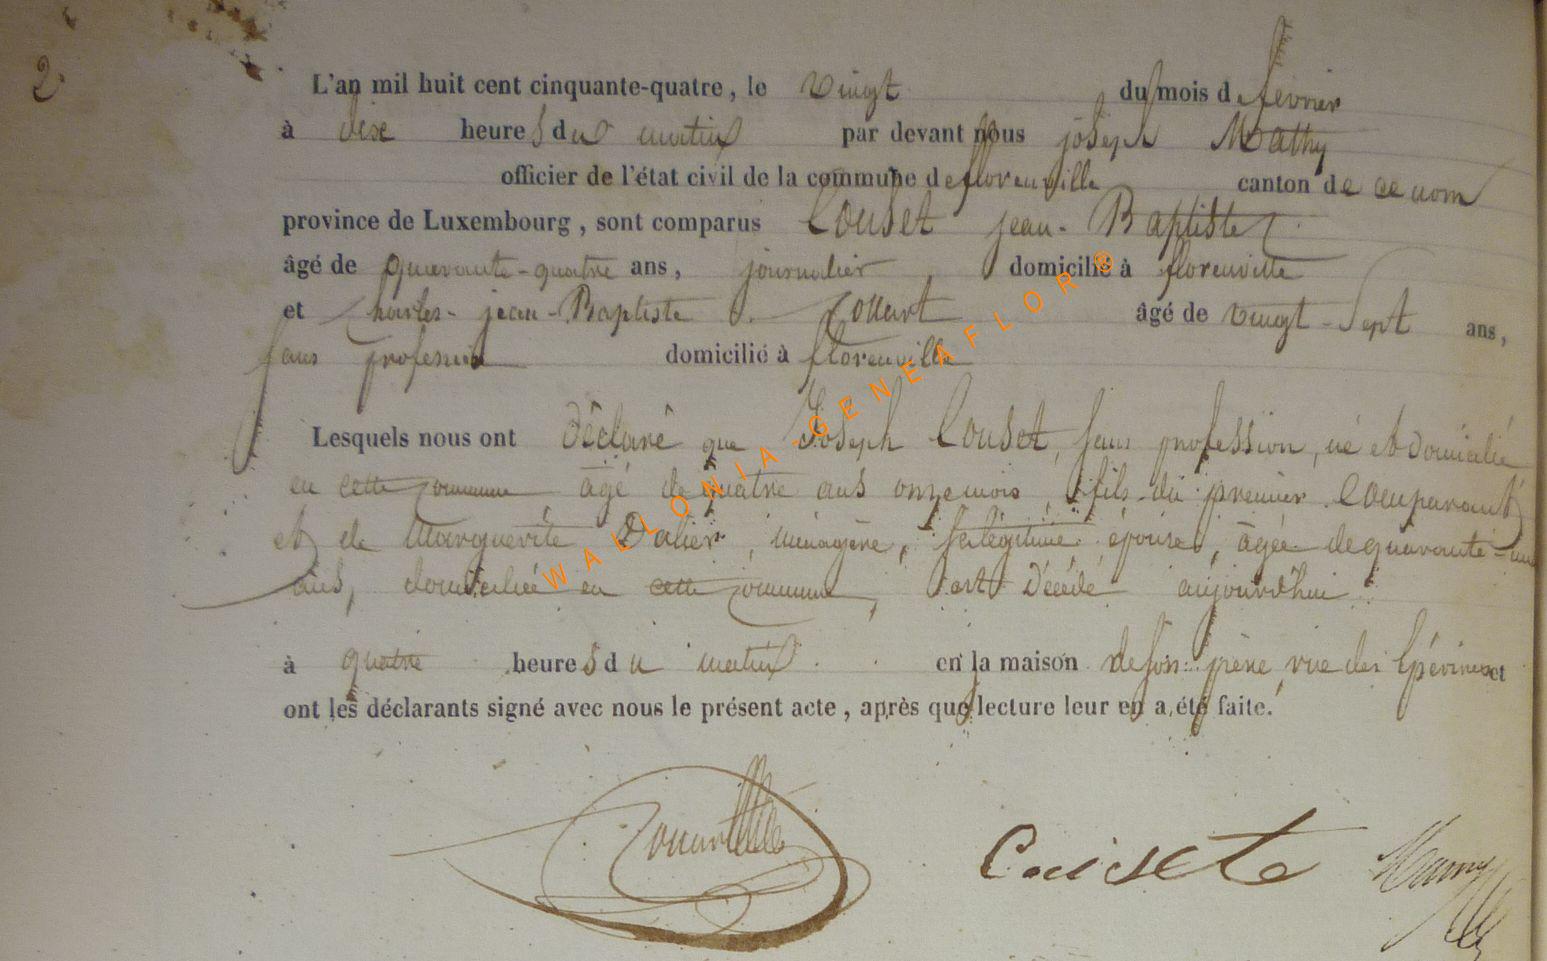 2.
L'an mil huit cent cinquante-quatre, le vingt du mois de fevrier
à dix heures du matin par devant nous joseph Mathy
officier de l'état civil de la commune de florenville canton de ce nom
province de Luxembourg, sont comparus Couset jean-Baptiste
âgé de quarante-quatre ans, journalier domicilié à florenville
et Charles-jean-Baptiste Collart âgé de vingt-Sept ans,
sans profession domicilié à florenville
Lesquels nous ont Déclaré que Joseph Couset, sans profession, né et domicilié
en cette commune âgé de quatre ans onze mois, fils du premier Comparant
et de Marguerite Dalier, ménagère, sa légitime épouse, âgée de quarante-un
ans, domiciliée en cette commune, est Décédé aujourd'hui
à quatre heures du matin en la maison de son père, rue des Epévines et
ont les déclarants signé avec nous le présent acte, après que lecture leur en a été faite.
Couset
WALLONIA-GENEAFLOR®